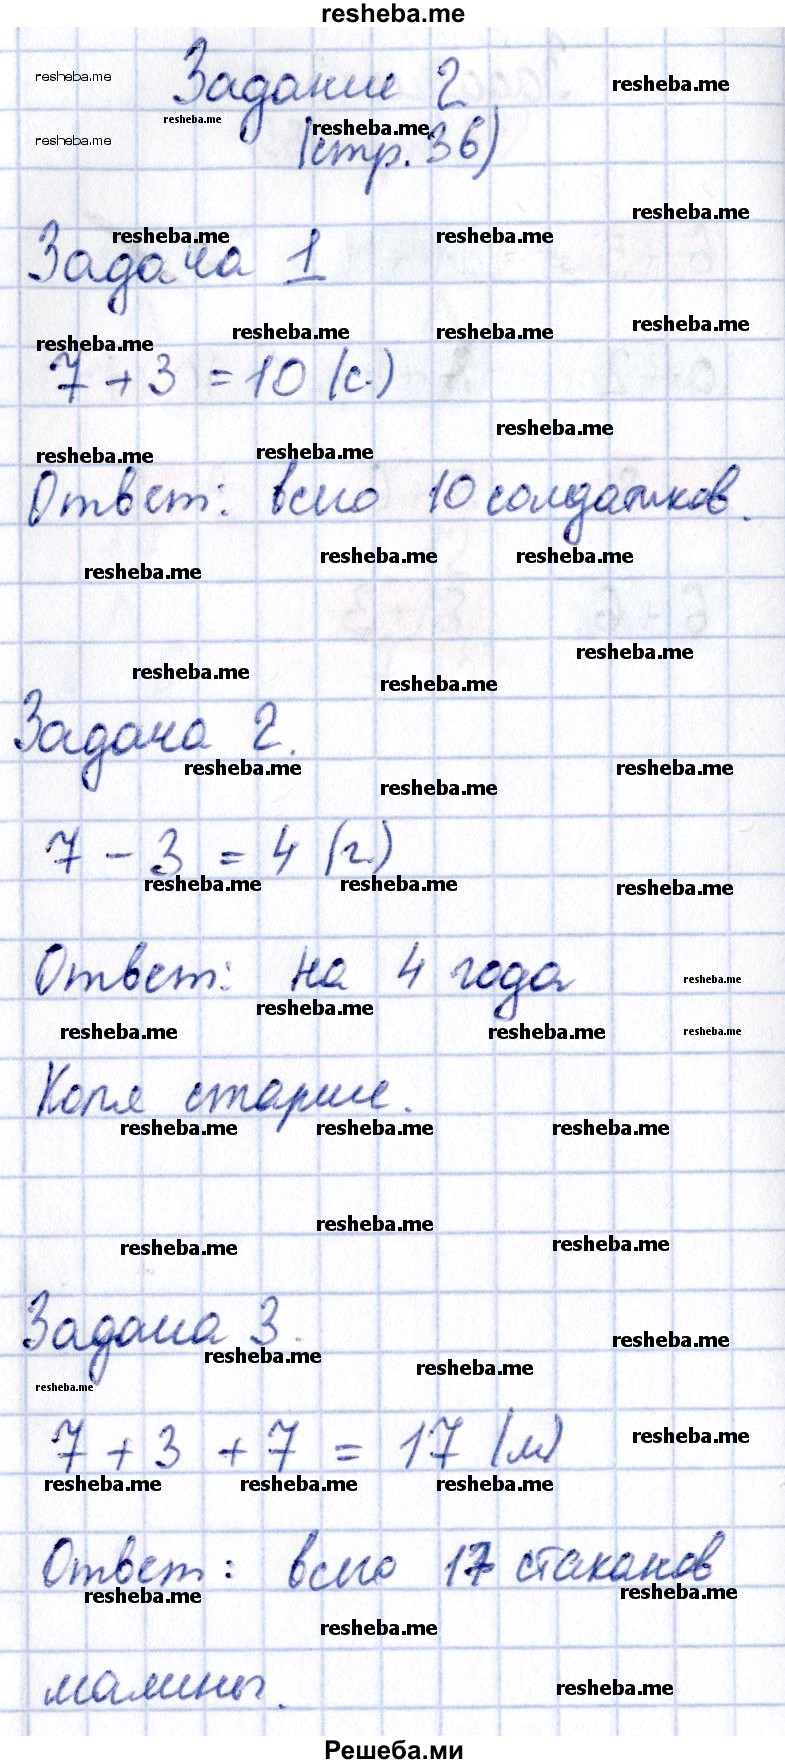 resheba.me
resheba.me
Задание 2
resheba.me
resheba.me
resheba.me
resheba.me
(стр. 36)
resheba.me
resheba.me
resheba.me
Задача 1
resheba.me
resheba.me
resheba.me
resheba.me
7 + 3 = 10 (с.)
resheba.me
resheba.me
resheba.me
Ответ: всего 10 солдатиков.
resheba.me
resheba.me
resheba.me
resheba.me
resheba.me
resheba.me
Задача 2.
resheba.me
resheba.me
resheba.me
7 - 3 = 4 (г.)
resheba.me
resheba.me
resheba.me
Ответ: на 4 года
resheba.me
resheba.me
resheba.me
resheba.me
resheba.me
Коля старше.
resheba.me
resheba.me
resheba.me
resheba.me
resheba.me
resheba.me
Задача 3.
resheba.me
resheba.me
resheba.me
resheba.me
7 + 3 + 7 = 17 (м)
resheba.me
resheba.me
resheba.me
resheba.me
Ответ: всего 17 стаканов
resheba.me
resheba.me
resheba.me
малины.
resheba.me
Решеба.ми